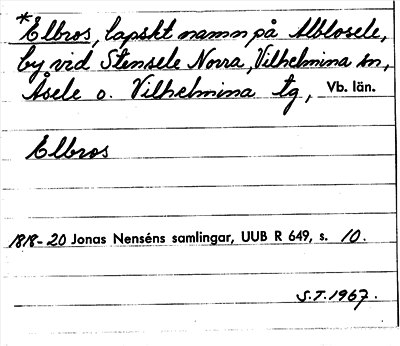 *Elbros, lapskt namn på Alblosele,
by vid Stensele Norra, Vilhelmina sn,
Åsele o. Vilhelmina tg, Vb. län.
Elbros
1818-20 Jonas Nenséns samlingar, UUB R 649, s. 10.
S.T. 1967.